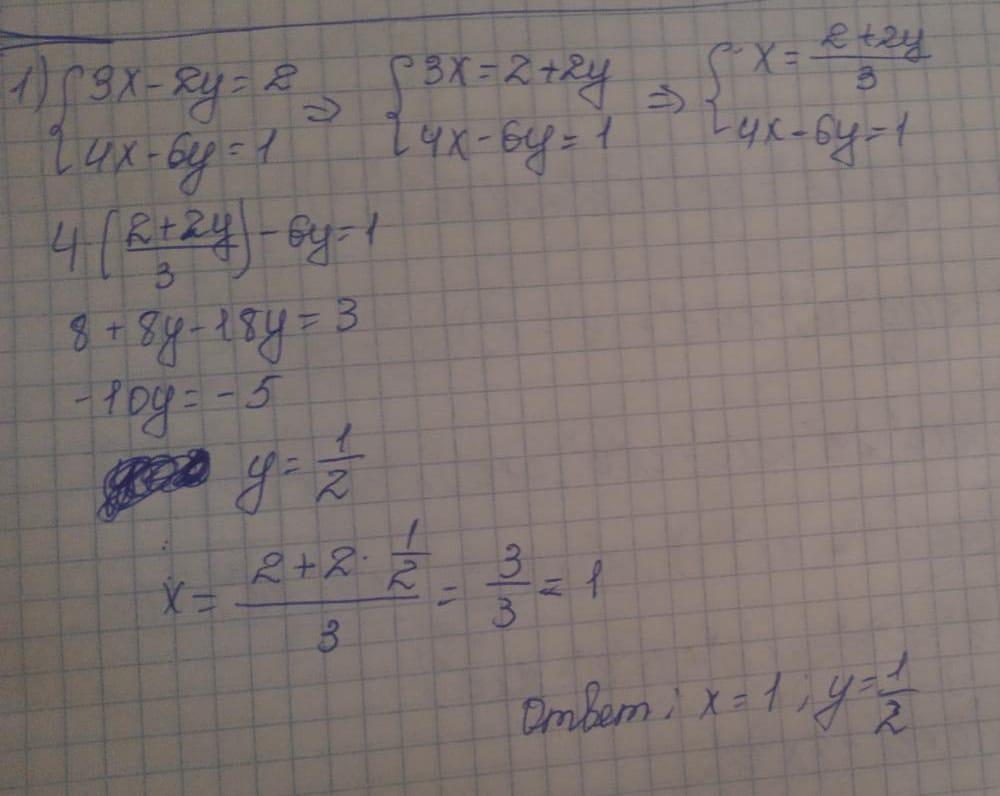 1) { 3x - 2y = 2 ⇒ { 3x = 2 + 2y ⇒ { x = (2 + 2y)/3
4x - 6y = 1   4x - 6y = 1   4x - 6y = 1
4 · ((2 + 2y)/3) - 6y = 1
8 + 8y - 18y = 3
-10y = -5
y = 1/2
x = (2 + 2 · 1/2)/3 = 3/3 = 1
Ответ: x = 1; y = 1/2